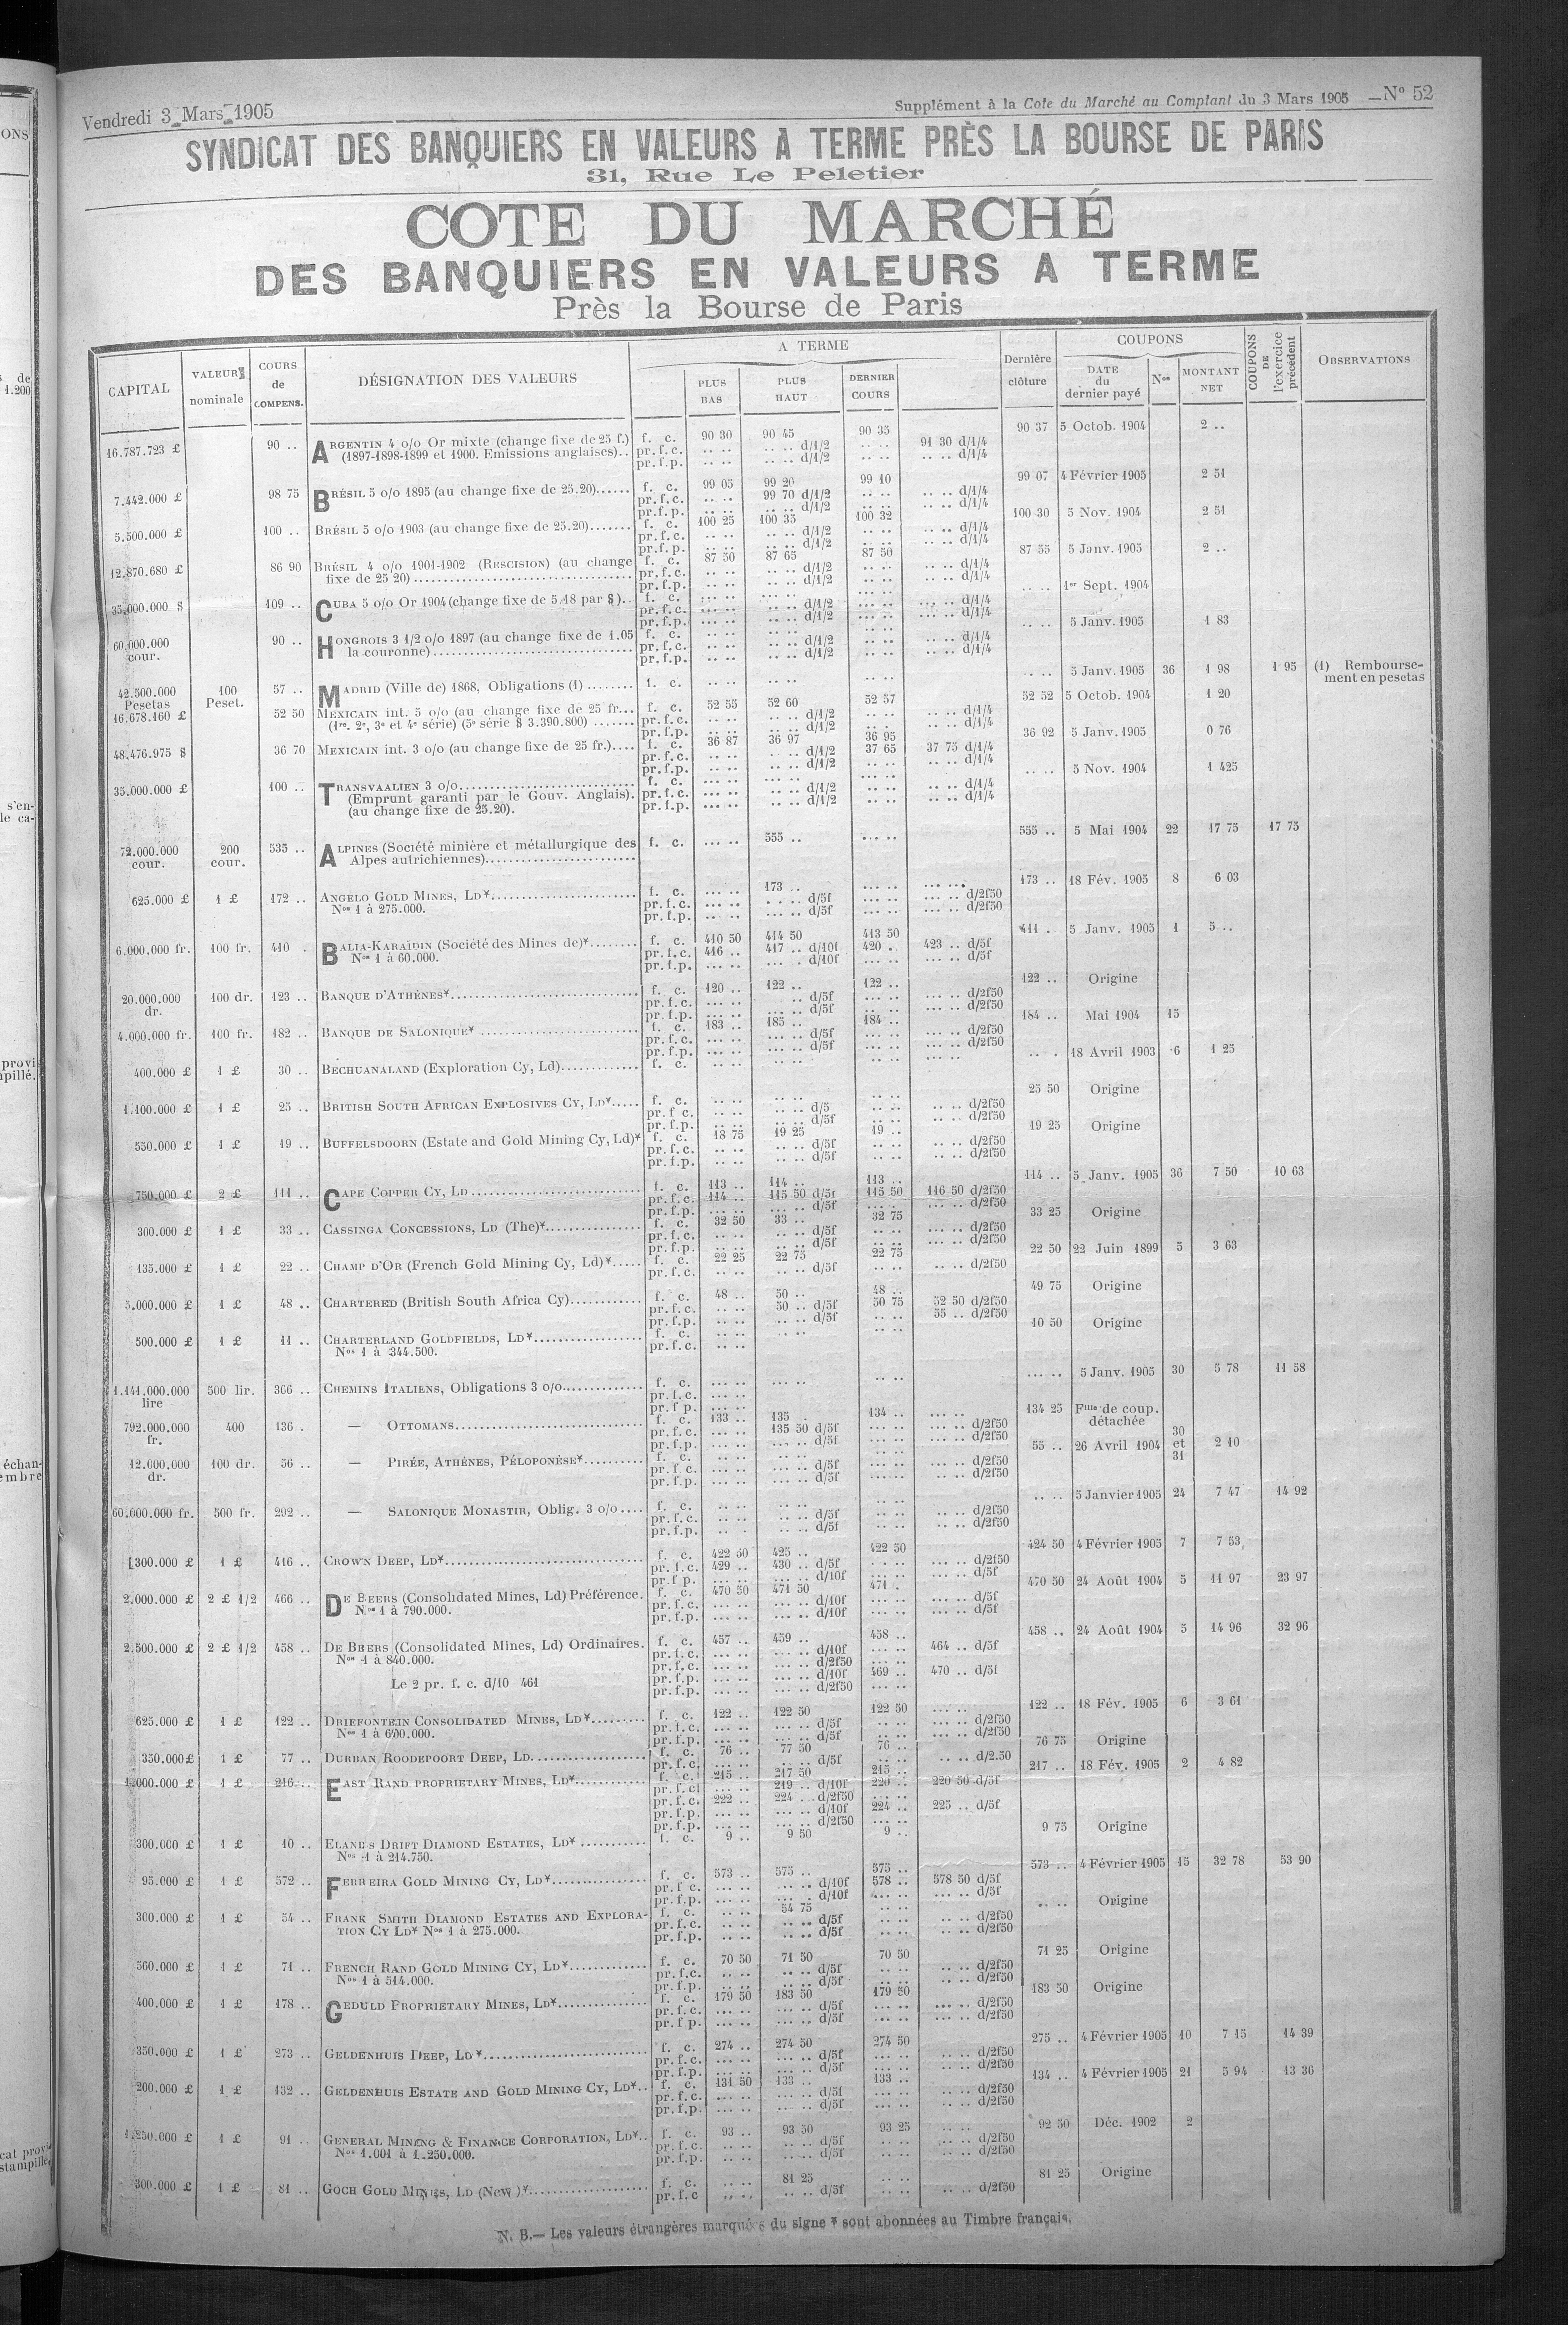 Vendredi 3 Mars 1905
Supplément à la Cote du Marché au Comptant du 3 Mars 1905 — No 52
SYNDICAT DES BANQUIERS EN VALEURS A TERME PRÈS LA BOURSE DE PARIS
31, Rue Le Peletier
COTE DU MARCHÉ
DES BANQUIERS EN VALEURS A TERME
Près la Bourse de Paris
CAPITAL VALEUR nominale COURS de COMPENS. DÉSIGNATION DES VALEURS A TERME PLUS BAS PLUS HAUT DERNIER COURS Dernière clôture COUPONS DATE du dernier payé Nos MONTANT NET COUPONS DE l'exercice précédent OBSERVATIONS
16.787.723 £ 90 .. ARGENTIN 4 o/o Or mixte (change fixe de 25 f.) f. c. 90 30 90 45 90 35 90 37 5 Octob. 1904 2 ..
(1897-1898-1899 et 1900. Emissions anglaises).. pr.f.c. .. .. .. .. d/1/2 .. .. 91 30 d/1/4
pr.f.p. .. .. .. .. d/1/2 .. .. d/1/4
7.442.000 £ 98 75 BRÉSIL 5 o/o 1895 (au change fixe de 25.20)...... f. c. 99 05 99 20 99 10 99 07 4 Février 1905 2 51
pr.f.c. .. .. 99 70 d/1/2 .. .. .. .. d/1/4
pr.f.p. .. .. .. .. d/1/2 .. .. d/1/4
5.500.000 £ 100 .. BRÉSIL 5 o/o 1903 (au change fixe de 25.20)....... f. c. 100 25 100 35 100 32 100 30 5 Nov. 1904 2 51
pr.f.c. .. .. .. .. d/1/2 .. .. .. .. d/1/4
pr.f.p. .. .. .. .. d/1/2 .. .. d/1/4
12.870.680 £ 86 90 BRÉSIL 4 o/o 1901-1902 (RESCISION) (au change f. c. 87 50 87 65 87 50 87 55 5 Janv. 1905 2 ..
fixe de 25 20) pr.f.c. .. .. .. .. d/1/2 .. .. d/1/4
pr.f.p. .. .. .. .. d/1/2 .. .. d/1/4
35.000.000 $ 109 .. CUBA 5 o/o Or 1904 (change fixe de 5.18 par $).. f. c. .. .. 1er Sept. 1904
pr.f.c. .. .. .. .. d/1/2 .. .. d/1/4
pr.f.p. .. .. .. .. d/1/2 .. .. d/1/4
60.000.000 cour. 90 .. HONGROIS 3 1/2 o/o 1897 (au change fixe de 1.05 f. c. .. .. 5 Janv. 1905 1 83
la couronne) pr.f.c. .. .. .. .. d/1/2 .. .. d/1/4
pr.f.p. .. .. .. .. d/1/2 .. .. d/1/4
42.500.000 Pesetas 100 Peset. 57 .. MADRID (Ville de) 1868, Obligations (1) ........ f. c. .. .. 5 Janv. 1905 36 1 98 1 95 (1) Remboursement en pesetas
16.678.160 £ 52 50 MEXICAIN int. 5 o/o (au change fixe de 25 fr... f. c. 52 55 52 60 52 57 52 52 5 Octob. 1904 1 20
(1re, 2e, 3e et 4e série) (5e série $ 3.390.800) ....... pr.f.c. .. .. .. .. d/1/2 .. .. d/1/4
pr.f.p. .. .. .. .. d/1/2 .. .. d/1/4
48.476.975 $ 36 70 MEXICAIN int. 3 o/o (au change fixe de 25 fr.).... f. c. 36 87 36 97 36 95 36 92 5 Janv. 1905 0 76
pr.f.c. .. .. .. .. d/1/2 37 65 37 75 d/1/4
pr.f.p. .. .. .. .. d/1/2 .. .. d/1/4
35.000.000 £ 100 .. TRANSVAALIEN 3 o/o f. c. .. .. 5 Nov. 1904 1 425
(Emprunt garanti par le Gouv. Anglais). pr.f.c. .. .. .. .. d/1/2 .. .. d/1/4
(au change fixe de 25.20). pr.f.p. .. .. .. .. d/1/2 .. .. d/1/4
72.000.000 cour. 200 cour. 535 .. ALPINES (Société minière et métallurgique des f. c. .. .. 555 .. .. .. 555 .. 5 Mai 1904 22 17 75 17 75
Alpes autrichiennes)
625.000 £ 1 £ 172 .. ANGELO GOLD MINES, LD* f. c. .. .. 173 .. .. .. 173 .. 18 Fév. 1905 8 6 03
Nos 1 à 275.000. pr.f.c. .. .. d/5f .. .. d/2f50
pr.f.p. .. .. d/5f .. .. d/2f50
6.000.000 fr. 100 fr. 410 . BALIA-KARAÏDIN (Société des Mines de)* f. c. 410 50 414 50 413 50 411 . 5 Janv. 1905 1 5 ..
Nos 1 à 60.000. pr.f.c. 416 .. 417 .. d/10f 420 .. 423 .. d/5f
pr.f.p. .. .. d/10f .. .. d/5f
20.000.000 dr. 100 dr. 123 .. BANQUE D'ATHÈNES* f. c. 120 .. 122 .. 122 .. 122 .. Origine
pr.f.c. .. .. d/5f .. .. d/2f50
pr.f.p. .. .. d/5f .. .. d/2f50
4.000.000 fr. 100 fr. 182 .. BANQUE DE SALONIQUE* f. c. 183 .. 185 .. 184 .. 184 .. Mai 1904 15
pr.f.c. .. .. d/5f .. .. d/2f50
pr.f.p. .. .. d/5f .. .. d/2f50
400.000 £ 1 £ 30 .. BECHUANALAND (Exploration Cy, Ld) f. c. .. .. 18 Avril 1903 6 1 25
1.100.000 £ 1 £ 25 .. BRITISH SOUTH AFRICAN EXPLOSIVES CY, LD* f. c. .. .. 25 50 Origine
pr.f c. .. .. d/5 .. .. d/2f50
pr.f.p. .. .. d/5f .. .. d/2f50
550.000 £ 1 £ 19 .. BUFFELSDOORN (Estate and Gold Mining Cy, Ld)* f. c. 18 75 19 25 19 .. 19 25 Origine
pr.f.c. .. .. d/5f .. .. d/2f50
pr.f.p. .. .. d/5f .. .. d/2f50
750.000 £ 2 £ 111 .. CAPE COPPER CY, LD f. c. 113 .. 114 .. 113 .. 114 .. 5 Janv. 1905 36 7 50 10 63
pr.f.c. 114 .. 115 50 d/5f 115 50 116 50 d/2f50
pr.f.p. .. .. d/5f .. .. d/2f50
300.000 £ 1 £ 33 .. CASSINGA CONCESSIONS, LD (The)* f. c. 32 50 33 .. 32 75 33 25 Origine
pr.f.c. .. .. d/5f .. .. d/2f50
pr.f.p. .. .. d/5f .. .. d/2f50
135.000 £ 1 £ 22 .. CHAMP D'OR (French Gold Mining Cy, Ld)* f. c. 22 25 22 75 22 75 22 50 22 Juin 1899 5 3 63
pr.f.c. .. .. d/5f .. .. d/2f50
5.000.000 £ 1 £ 48 .. CHARTERED (British South Africa Cy) f. c. 48 .. 50 .. 48 .. 49 75 Origine
pr.f.c. .. .. 50 .. d/5f 50 75 52 50 d/2f50
pr.f.p. .. .. d/5f .. .. 55 .. d/2f50
500.000 £ 1 £ 11 .. CHARTERLAND GOLDFIELDS, LD* f. c. .. .. 10 50 Origine
Nos 1 à 344.500. pr.f.c. .. ..
1.141.000.000 lire 500 lir. 366 .. CHEMINS ITALIENS, Obligations 3 o/o f. c. .. .. 5 Janv. 1905 30 5 78 11 58
pr.f.c. .. ..
pr.f p. .. ..
792.000.000 fr. 400 136 . — OTTOMANS f. c. 133 .. 135 . 134 .. 134 25 Flle de coup. détachée
pr.f.c. .. .. 135 50 d/5f .. .. d/2f50
pr.f.p. .. .. d/5f .. .. d/2f50
12.000.000 dr. 100 dr. 56 .. — PIRÉE, ATHÈNES, PÉLOPONÈSE* f. c. .. .. 55 .. 26 Avril 1904 30 et 31 2 10
pr.f c. .. .. d/5f .. .. d/2f50
pr.f.p. .. .. d/5f .. .. d/2f50
60.000.000 fr. 500 fr. 292 .. — SALONIQUE MONASTIR, Oblig. 3 o/o f. c. .. .. 5 Janvier 1905 24 7 47 14 92
pr.f.c. .. .. d/5f .. .. d/2f50
pr.f.p. .. .. d/5f .. .. d/2f50
300.000 £ 1 £ 416 .. CROWN DEEP, LD* f. c. 422 50 425 .. 422 50 424 50 4 Février 1905 7 7 53
pr.f.c. 429 .. 430 .. d/5f .. .. d/2f50
pr.f p. .. .. d/10f .. .. d/5f
2.000.000 £ 2 £ 1/2 466 .. DE BEERS (Consolidated Mines, Ld) Préférence. f. c. 470 50 471 50 471 . 470 50 24 Août 1904 5 11 97 23 97
Nos 1 à 790.000. pr.f.c. .. .. d/10f .. .. d/5f
pr.f.p. .. .. d/10f .. .. d/5f
2.500.000 £ 2 £ 1/2 458 .. DE BEERS (Consolidated Mines, Ld) Ordinaires. f. c. 457 .. 459 .. 458 .. 458 .. 24 Août 1904 5 14 96 32 96
Nos 1 à 840.000. pr.f.c. .. .. d/10f .. .. 464 .. d/5f
pr.f.c. .. .. d/2f50
Le 2 pr. f. c. d/10 461 pr.f.p. .. .. d/10f 469 .. 470 .. d/5f
pr.f.p. .. .. d/2f50 .. ..
625.000 £ 1 £ 122 .. DRIEFONTEIN CONSOLIDATED MINES, LD* f. c. 122 .. 122 50 122 50 122 .. 18 Fév. 1905 6 3 61
Nos 1 à 600.000. pr.f.c. .. .. d/5f .. .. d/2f50
pr.f.p. .. .. d/5f .. .. d/2f50
350.000 £ 1 £ 77 .. DURBAN ROODEPOORT DEEP, LD f. c. 76 .. 77 50 76 .. 76 75 Origine
pr.f.c. .. .. d/5f .. .. d/2.50
1.000.000 £ 1 £ 216 .. EAST RAND PROPRIETARY MINES, LD* f. c. 215 .. 217 50 215 .. 217 .. 18 Fév. 1905 2 4 82
pr.f.c. .. .. 219 .. d/10f 220 .. 220 50 d/5f
pr.f.c. 222 .. 224 .. d/2f50 .. ..
pr.f.p. .. .. d/10f 224 .. 225 .. d/5f
pr.f.p. .. .. d/2f50 .. ..
300.000 £ 1 £ 10 .. ELANDS DRIFT DIAMOND ESTATES, LD* f. c. 9 .. 9 50 9 .. 9 75 Origine
Nos 1 à 214.750.
95.000 £ 1 £ 572 .. FERREIRA GOLD MINING CY, LD* f. c. 573 .. 575 .. 575 .. 573 .. 4 Février 1905 15 32 78 53 90
pr.f c. .. .. d/10f 578 .. 578 50 d/5f
pr.f.p. .. .. d/10f .. .. d/5f
300.000 £ 1 £ 54 .. FRANK SMITH DIAMOND ESTATES AND EXPLORA- f. c. .. .. 54 75 .. .. Origine
TION CY LD* Nos 1 à 275.000. pr.f.c. .. .. d/5f .. .. d/2f50
pr.f.p. .. .. d/5f .. .. d/2f50
560.000 £ 1 £ 71 .. FRENCH RAND GOLD MINING CY, LD* f. c. 70 50 71 50 70 50 71 25 Origine
Nos 1 à 514.000. pr.f.c. .. .. d/5f .. .. d/2f50
pr.f.p. .. .. d/5f .. .. d/2f50
400.000 £ 1 £ 178 .. GEDULD PROPRIETARY MINES, LD* f. c. 179 50 183 50 179 50 183 50 Origine
pr.f.c. .. .. d/5f .. .. d/2f50
pr f p. .. .. d/5f .. .. d/2f50
350.000 £ 1 £ 273 .. GELDENHUIS DEEP, LD* f. c. 274 .. 274 50 274 50 275 .. 4 Février 1905 10 7 15 14 39
pr.f.c. .. .. d/5f .. .. d/2f50
pr.f.p. .. .. d/5f .. .. d/2f50
200.000 £ 1 £ 132 .. GELDENHUIS ESTATE AND GOLD MINING CY, LD* f. c. 131 50 133 .. 133 .. 134 .. 4 Février 1905 21 5 94 13 36
pr.f.c. .. .. d/5f .. .. d/2f50
pr.f.p. .. .. d/5f .. .. d/2f50
1.250.000 £ 1 £ 91 .. GENERAL MINING & FINANCE CORPORATION, LD* f. c. 93 .. 93 50 93 25 92 50 Déc. 1902 2
Nos 1.001 à 1.250.000. pr.f.c. .. .. d/5f .. .. d/2f50
pr.f.p. .. .. d/5f .. .. d/2f50
300.000 £ 1 £ 81 .. GOCH GOLD MINES, LD (New)* f. c. .. .. 81 25 .. .. 81 25 Origine
pr.f.c .. .. d/5f .. .. d/2f50
N. B.— Les valeurs étrangères marquées du signe * sont abonnées au Timbre français.